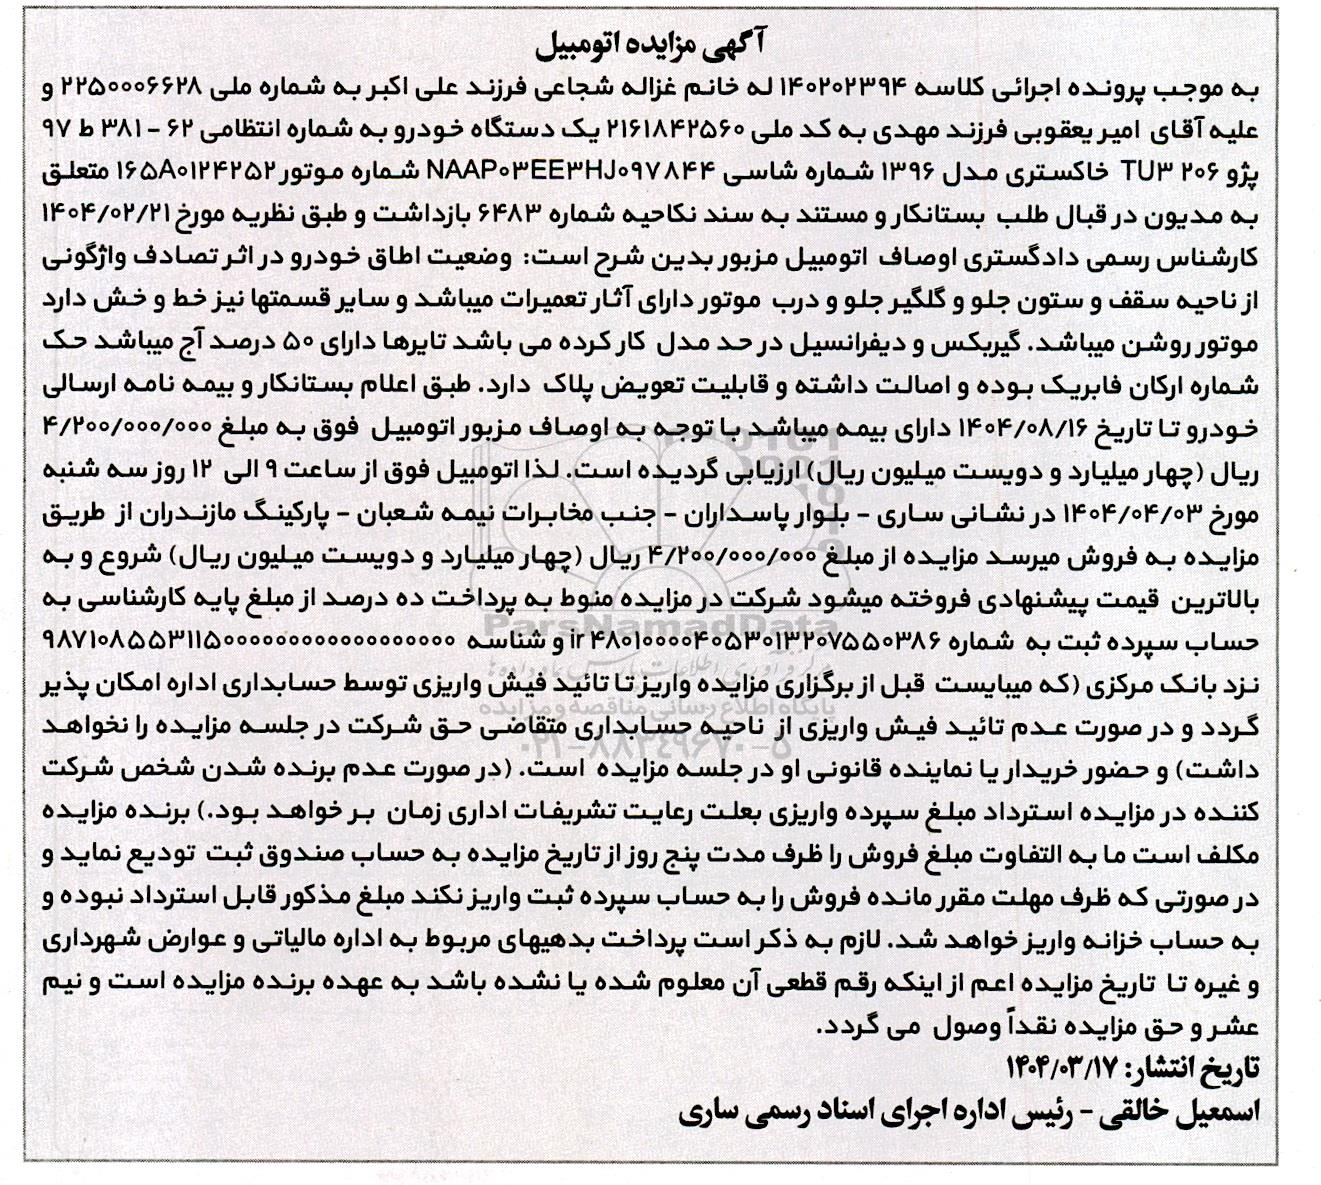 آگهی مزایده اتومبیل
به موجب پرونده اجرائی کلاسه ۱۴۰۲۰۲۳۹۴ له خانم غزاله شجاعی فرزند علی اکبر به شماره ملی ۲۲۵۰۰۰۶۶۲۸ و
علیه آقای امیر یعقوبی فرزند مهدی به کد ملی ۲۱۶۱۸۴۲۵۶۰ یک دستگاه خودرو به شماره انتظامی ۶۲ - ۳۸۱ ط ۹۷
پژو ۲۰۶ TU۳ خاکستری مدل ۱۳۹۶ شماره شاسی NAAP۰۳EE۳HJ۰۹۷۸۴۴ شماره موتور ۱۶۵A۰۱۲۴۲۵۲ متعلق
به مدیون در قبال طلب بستانکار و مستند به سند نکاحیه شماره ۶۴۸۳ بازداشت و طبق نظریه مورخ ۱۴۰۴/۰۲/۲۱
کارشناس رسمی دادگستری اوصاف اتومبیل مزبور بدین شرح است: وضعیت اطاق خودرو در اثر تصادف واژگونی
از ناحیه سقف و ستون جلو و گلگیر جلو و درب موتور دارای آثار تعمیرات میباشد و سایر قسمتها نیز خط و خش دارد
موتور روشن میباشد. گیربکس و دیفرانسیل در حد مدل کار کرده می باشد تایرها دارای ۵۰ درصد آج میباشد حک
شماره ارکان فابریک بوده و اصالت داشته و قابلیت تعویض پلاک دارد. طبق اعلام بستانکار و بیمه نامه ارسالی
خودرو تا تاریخ ۱۴۰۴/۰۸/۱۶ دارای بیمه میباشد با توجه به اوصاف مزبور اتومبیل فوق به مبلغ ۴/۲۰۰/۰۰۰/۰۰۰
ریال (چهار میلیارد و دویست میلیون ریال) ارزیابی گردیده است. لذا اتومبیل فوق از ساعت ۹ الی ۱۲ روز سه شنبه
مورخ ۱۴۰۴/۰۴/۰۳ در نشانی ساری - بلوار پاسداران - جنب مخابرات نیمه شعبان - پارکینگ مازندران از طریق
مزایده به فروش میرسد مزایده از مبلغ ۴/۲۰۰/۰۰۰/۰۰۰ ریال (چهار میلیارد و دویست میلیون ریال) شروع و به
بالاترین قیمت پیشنهادی فروخته میشود شرکت در مزایده منوط به پرداخت ده درصد از مبلغ پایه کارشناسی به
حساب سپرده ثبت به شماره ir ۴۸۰۱۰۰۰۰۴۰۵۳۰۱۳۲۰۷۵۵۰۳۸۶ و شناسه ۹۸۷۱۰۸۵۵۳۱۱۵۰۰۰۰۰۰۰۰۰۰۰۰۰۰۰۰۰
نزد بانک مرکزی (که میبایست قبل از برگزاری مزایده واریز تا تائید فیش واریزی توسط حسابداری اداره امکان پذیر
گردد و در صورت عدم تائید فیش واریزی از ناحیه حسابداری متقاضی حق شرکت در جلسه مزایده را نخواهد
داشت) و حضور خریدار یا نماینده قانونی او در جلسه مزایده است. (در صورت عدم برنده شدن شخص شرکت
کننده در مزایده استرداد مبلغ سپرده واریزی بعلت رعایت تشریفات اداری زمان بر خواهد بود.) برنده مزایده
مکلف است ما به التفاوت مبلغ فروش را ظرف مدت پنج روز از تاریخ مزایده به حساب صندوق ثبت تودیع نماید و
در صورتی که ظرف مهلت مقرر مانده فروش را به حساب سپرده ثبت واریز نکند مبلغ مذکور قابل استرداد نبوده و
به حساب خزانه واریز خواهد شد. لازم به ذکر است پرداخت بدهیهای مربوط به اداره مالیاتی و عوارض شهرداری
و غیره تا تاریخ مزایده اعم از اینکه رقم قطعی آن معلوم شده یا نشده باشد به عهده برنده مزایده است و نیم
عشر و حق مزایده نقداً وصول می گردد.
تاریخ انتشار: ۱۴۰۴/۰۳/۱۷
اسمعیل خالقی - رئیس اداره اجرای اسناد رسمی ساری
ParsNamadData
پایگاه اطلاع رسانی مناقصه و مزایده
۰۲۱-۸۸۳۴۹۶۷۰-۵